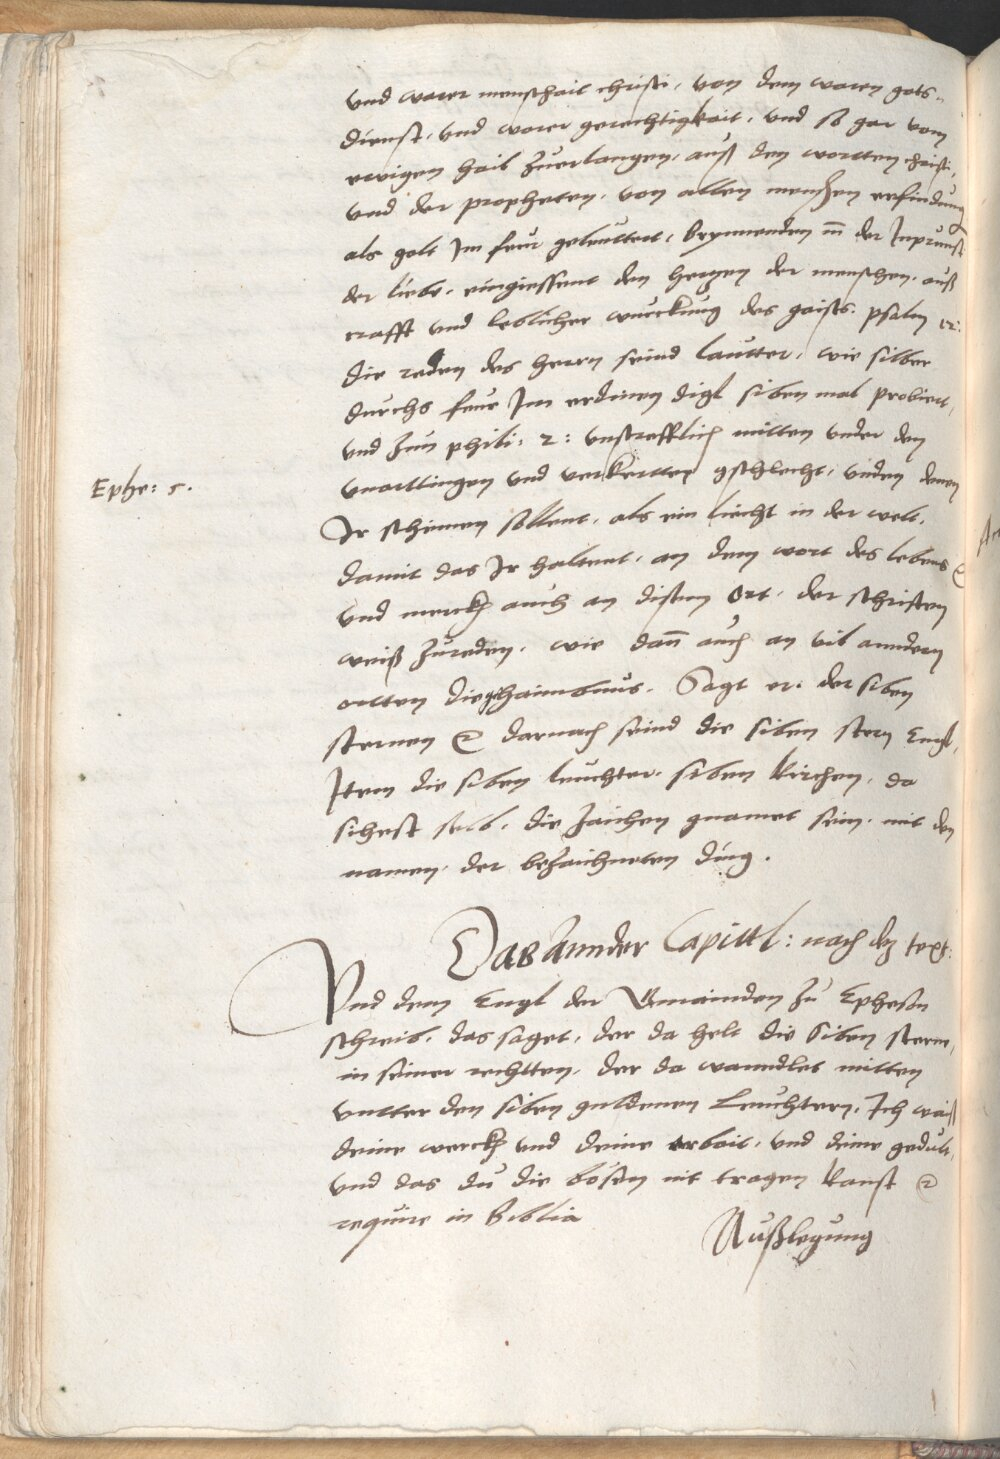 und warer menschait christi, von dem waren gots„
dienst, und warer gerechtigkait, und so gar vom
ewigen hail zuerlangen, auß den wortten christi,
und der propheten, von allen menschen erfindung
als golt Im feur geleuttert, brynnenden in der Inprunst
der liebe, eingiessent den hertzen der menschen, auß
crafft und leblicher wurckung des gaists. psalm 12:
die reden des herrn seind lautter, wie silber
durchs feur Im erdinen digl siben mal probiert,
und zun phili: 2: unstrefflich mitten under den
unarttingen und verkertten gschlecht, under denen
Ephe: 5.
Ir scheinen sollent, als ein liecht in der welt,
damit das Ir haltent, an dem wort des lebens etc
und merckh auch an disem Ort, der schrifften
weiß zureden, wie dann auch an vil anndern
ortten die ghaimbnus. Sagt er: der siben
sternen etc darnach seind die siben stern Engl,
Item die siben leuchter, siben kirchen, da
sihest selb, die zaichen gnamet sein, mit den
namen, der bezaichneten ding.
Das Annder Capittl: nach dem text:
Und dem Engl der Gmainden zu Epheson
schreib, das saget, der da helt die Siben sterne,
in seiner rechtten, der da wanndlet mitten
untter den siben guldenen Leuchtern, Ich waiß
deine werckh und deine arbait, und deine gedult,
und das du die bösen nit tragen kanst etc
require in Biblia
Außlegung